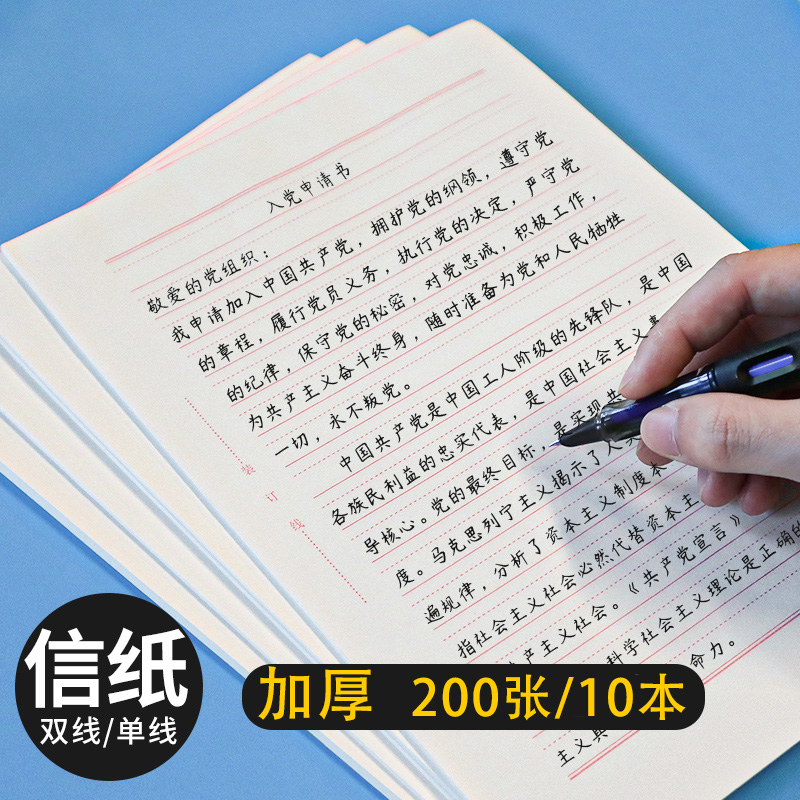 入党申请书
敬爱的党组织：
我申请加入中国共产党，拥护党的纲领，遵守党
的章程，履行党员义务，执行党的决定，严守党
的纪律，保守党的秘密，对党忠诚，积极工作，
为共产主义奋斗终身，随时准备为党和人民牺牲
一切，永不叛党。
中国共产党是中国工人阶级的先锋队，是中国
各族民利益的忠实代表，是中国社会主义事
导核心。党的最终目标，是实现共
度。马克思列宁主义揭示了人类
遍规律，分析了资本主义制度本
指社会主义社会必然代替资本主
产主义社会。《共产党宣言》
科学社会主义理论是正确的
命力。
主义具
装订线
信纸
双线/单线
加厚 200张/10本